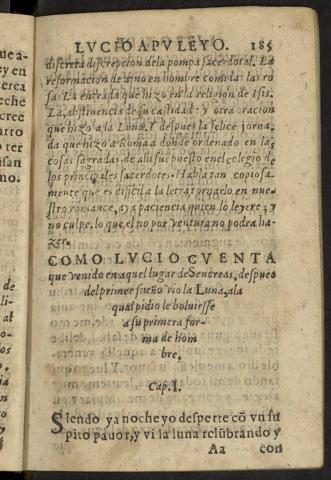 LVCIO APVLEYO. 185
discreta discrepcion dela pompa sacerdotal. La
reformacion de asno en hombre comidas las ro
sas. La entrada que hizo en la religion de Isis.
La abstinencia de su castidad: y otra oracion
que hizo a la Luna. Y despues la felice jorna
da que hizo a Roma a donde ordenado en las
cosas sagradas, de alli fue puesto en el colegio de
los principales sacerdotes. Habla tan copiosa
mente que es dificil a la letra tornarlo en nue
stro romance, aya paciencia quien lo leyere, y
no culpe. lo que el no por ventura no podra ha
zer.
COMO LVCIO CVENTA
que venido en aquel lugar de Sencreas, despues
del primer sueño vio la Luna, ala
qual pidio le boluiesse
a su primera for-
ma de hom
bre.
Cap. I.
SIendo ya noche yo desperte cō vn su
pito pauor, y vi la luna relūbrando y
Aa con